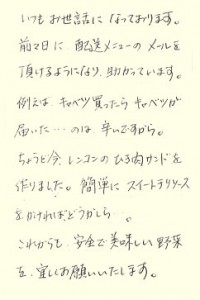 いつもお世話に なっております。
前々日に 配送メニューの メールを
頂けるようになり、助かっています。
例えば、キャベツ買ったら キャベツが
届いた…のは、辛いですから。
ちょうど今、レンコンの ひき肉サンドを
作りました。簡単に スイートチリソース
をかければどうかしら…。
これからも、安全で美味しい野菜
を、宜しくお願いいたします。